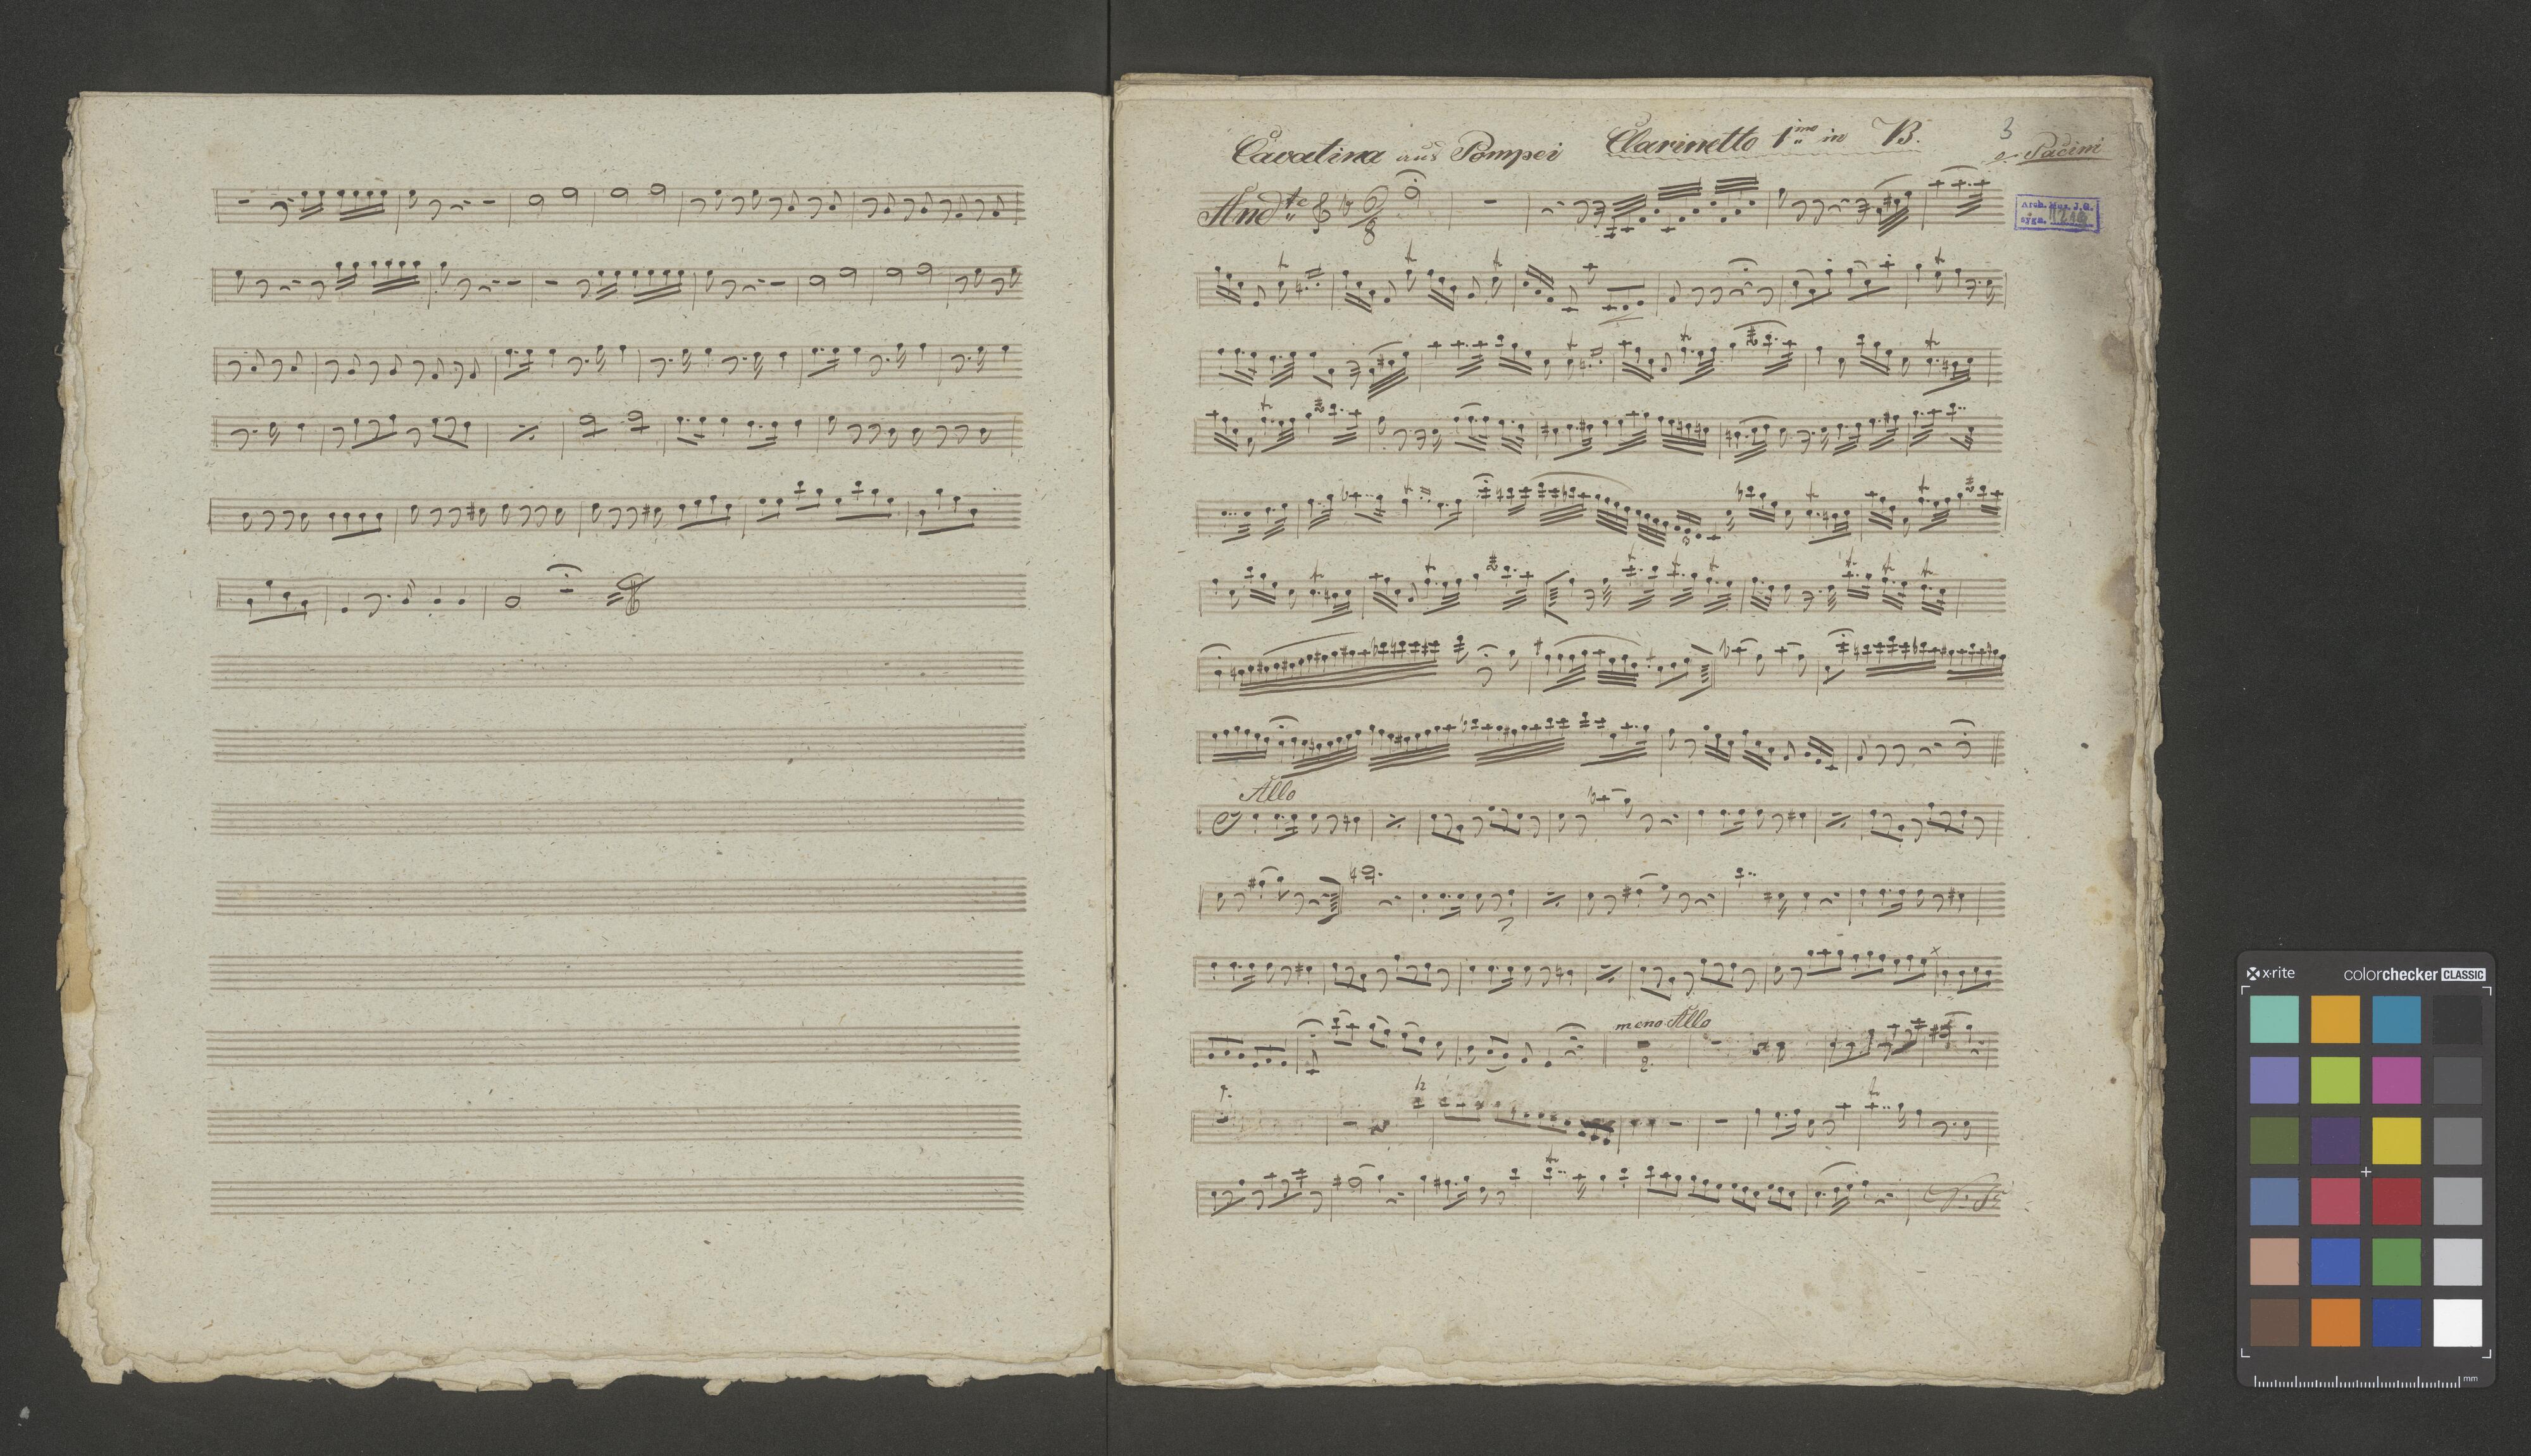 Cavatina aus Pompei Clarinetto 1mo in B.
3
Pacini
Andte
6
8
Arch. Mus. J. G.
sygn.
Allo
meno Allo
x-rite
colorchecker CLASSIC
mm